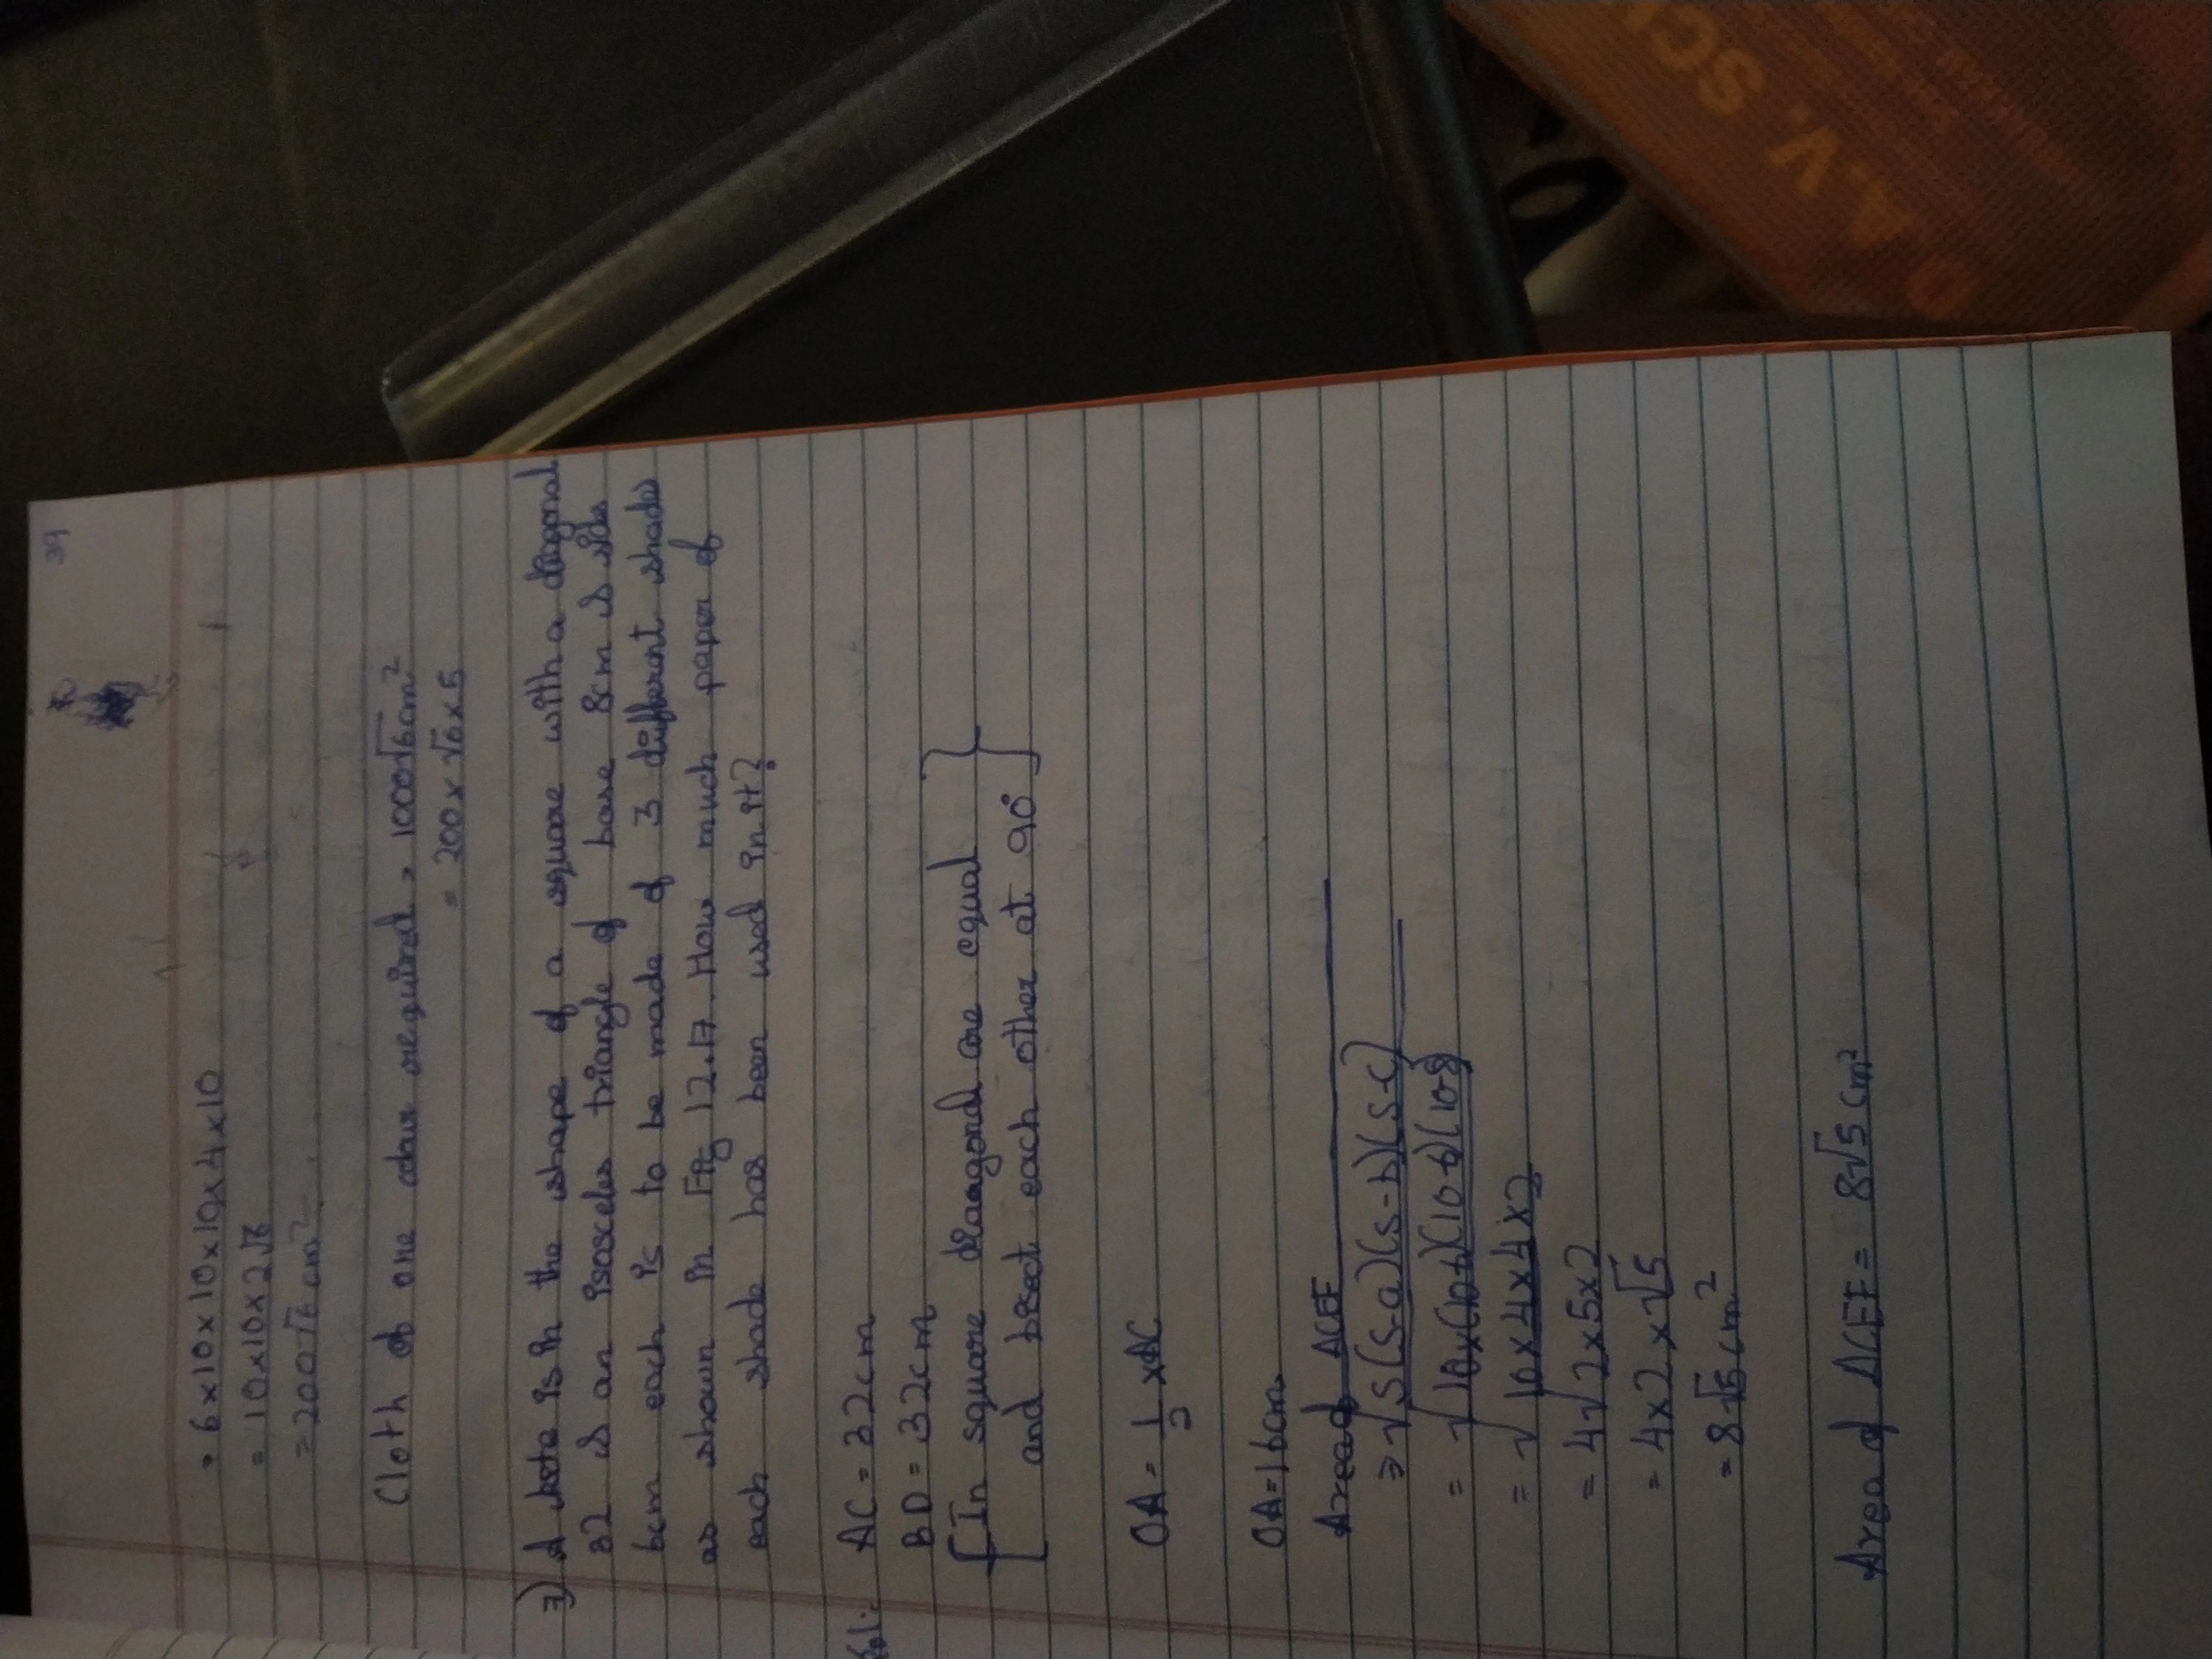 39
= 6x10x10x10x4x10
= 10x10x2√6
= 200√6 cm²
Cloth of one colour required = 1000√6 cm²
= 200 x √6 x 5
7) A kite is in the shape of a square with a diagonal
32 & an isosceles triangle of base 8cm & sides
6cm each is to be made of 3 different shade
as shown in Fig 12.17. How much paper of
each shade has been used in it?
Sol:- AC = 32cm
BD = 32cm
[In square diagonal are equal
and bisect each other at 90°]
OA = 1/2 x AC
OA = 16cm
Area of ΔCEF
⇒ √s(s-a)(s-b)(s-c)
= √10x(10-6)(10-6)(10-8
= √10x4x4x2
= 4√2x5x2
= 4x2x√5
= 8√5 cm²
Area of ΔCEF = 8√5 cm²
D.A.V. SC